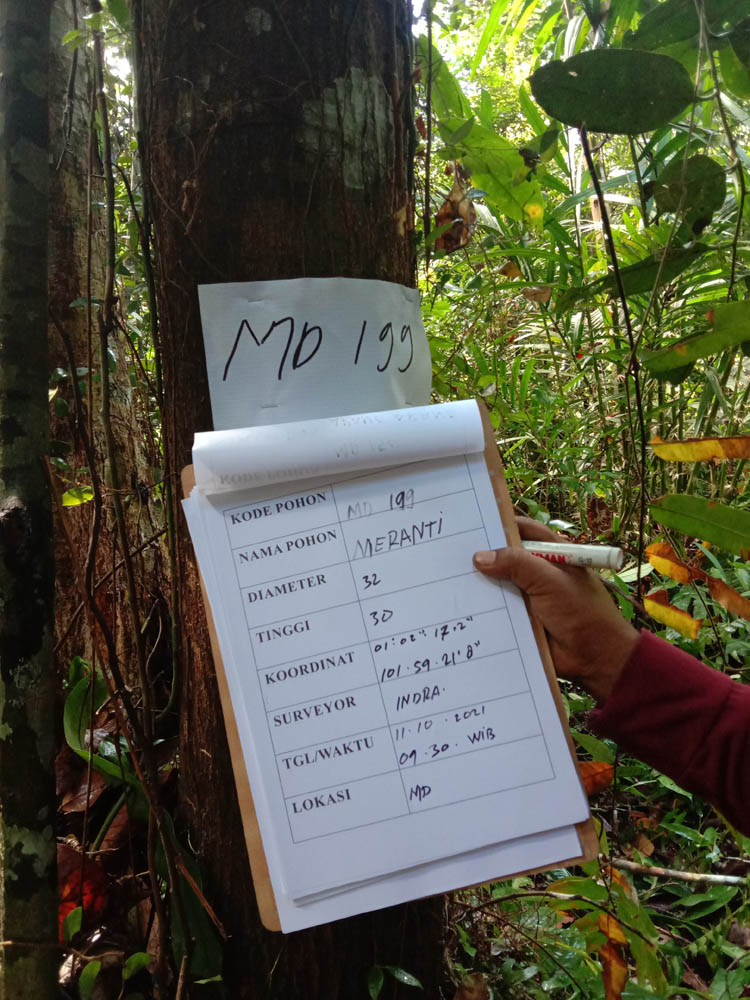 MD 199
KODE POHON MD 199
NAMA POHON MERANTI
DIAMETER 32
TINGGI 30
KOORDINAT 01°02" 17.2"
101.59.21'8"
SURVEYOR INDRA.
TGL/WAKTU 11.10.2021
09.30.WIB
LOKASI MD